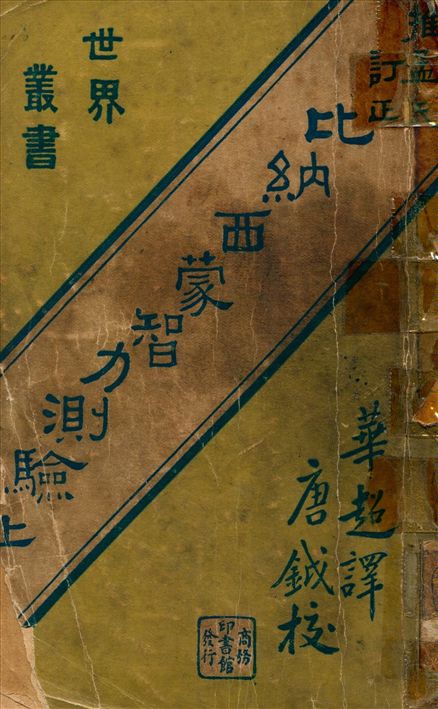 推孟氏
訂正
比納西蒙智力測驗上
世界
叢書
華超譯
唐鉞校
商務
印書館
發行